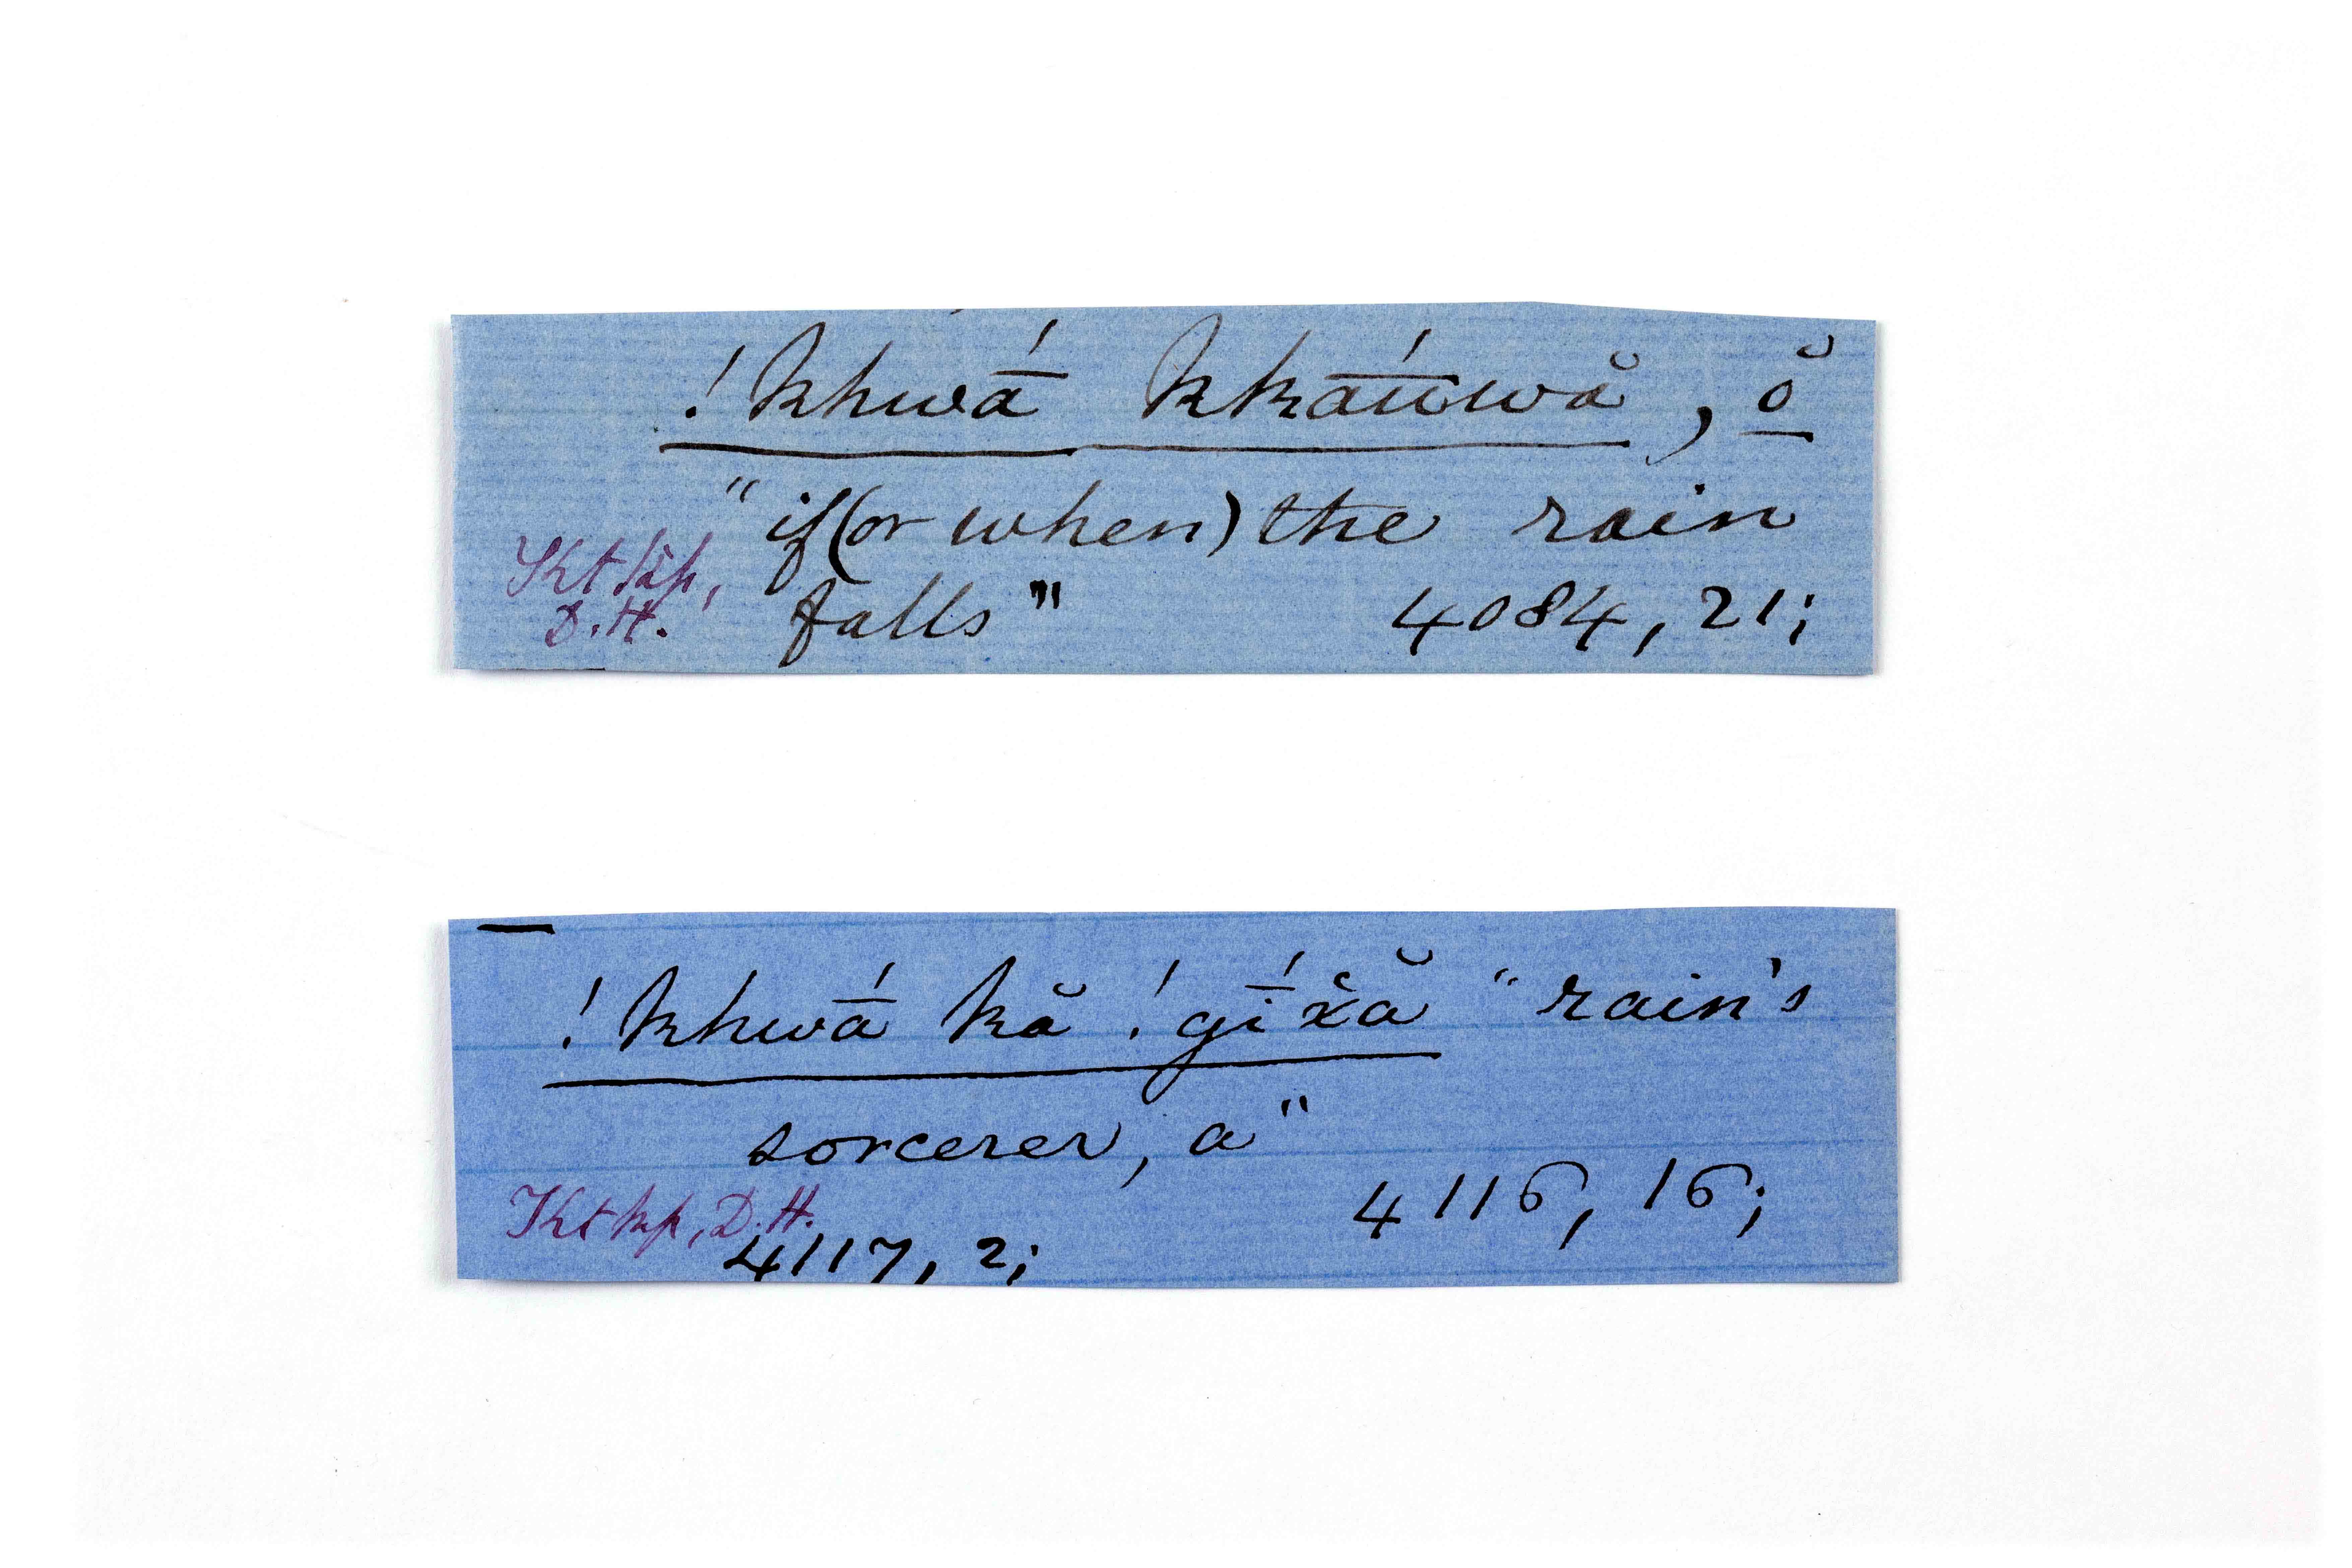 !khwā́ kkā́ŭwă, ŏ
"if (or when) the rain
falls" 4084, 21;
D.H.
!khwā́ kă !gī́xă "rain's
sorcerer, a"
4116, 16;
D.H.
4117, 2;